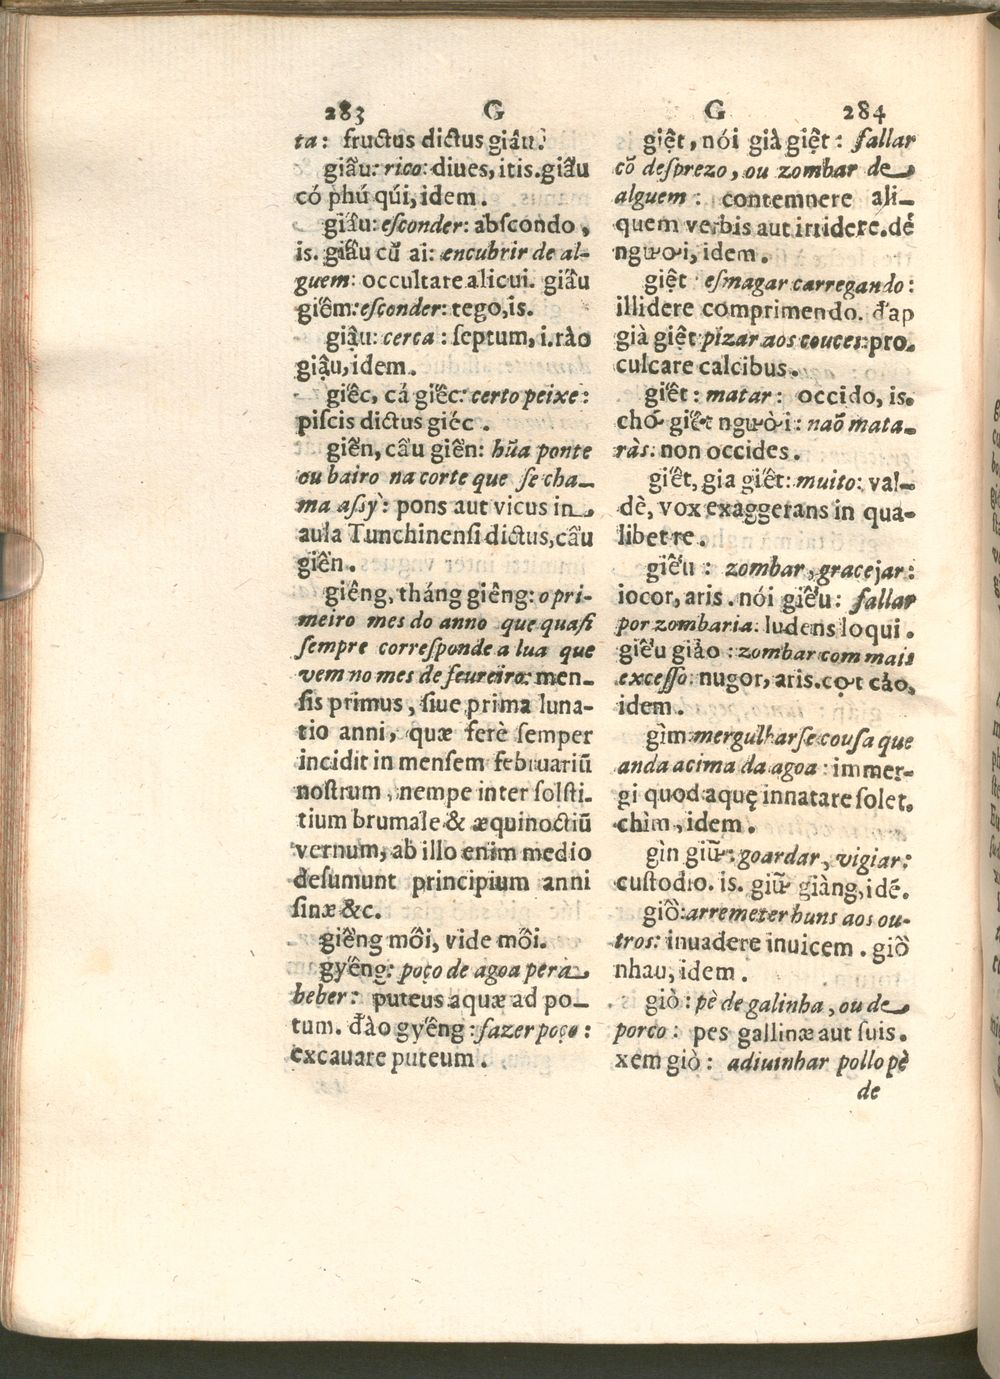 283 G
ta: fructus dictus giâu.
giầu: rico: diues, itis. giầu
có phú qúi, idem.
giấu: eſconder: abſcondo,
is. giấu cũ ai: encubrir de al-
guem: occultare alicui. giấu
giếm: eſconder: tego, is.
giậu: cerca: ſeptum, i. rào
giậu, idem.
giếc, cá giếc: certo peixe:
piſcis dictus giéc.
giền, cầu giền: hũa ponte
ou bairo na corte que ſe cha-
ma aſsy: pons aut vicus in
aula Tunchinenſi dictus, cầu
giền.
giêng, tháng giêng: o pri-
meiro mes do anno que quaſi
ſempre correſponde a lua que
vem no mes de feureiro: men-
ſis primus, ſiue prima luna-
tio anni, quæ ferè ſemper
incidit in menſem februariũ
noſtrum, nempe inter ſolſti-
tium brumale & æquinoctiũ
vernum, ab illo enim medio
deſumunt principium anni
ſinæ &c.
giềng mồi, vide mồi.
gyếng: poço de agoa pera
beber: puteus aquæ ad po-
tum. đào gyếng: fazer poço:
excauare puteum.
G 284
giệt, nói già giệt: fallar
cõ deſprezo, ou zombar de
alguem: contemnere ali-
quem verbis aut irridere. dể
ngươi, idem.
giệt eſmagar carregando:
illidere comprimendo. đạp
già giệt: pizar aos couces: pro-
culcare calcibus.
giết: matar: occido, is.
chớ giết người: naõ mata-
ràs: non occides.
giết, gia giết: muito: val-
dè, vox exaggerans in qua-
libet re.
giễu: zombar, gracejar:
iocor, aris. nói giễu: fallar
por zombaria: ludens loqui.
giễu giảo: zombar com mais
exceſſo: nugor, aris. cọt cảo,
idem.
gìm: mergulharſe couſa que
anda acima da agoa: immer-
gi quod aquę innatare ſolet.
chìm, idem.
gìn giữ: goardar, vigiar:
cuſtodio. is. giữ giàng, idẽ.
giồ: arremeter huns aos ou-
tros: inuadere inuicem. giồ
nhau, idem.
giò: pè de galinha, ou de
porco: pes gallinæ aut ſuis.
xem giò: adiuinhar pollo pè
de